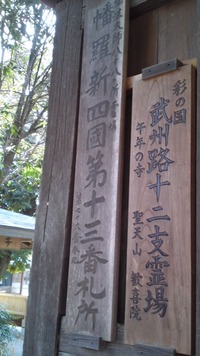 幡羅新四國第十三番札所
彩の国
武州路十二支霊場
午年の寺
聖天山 歓喜院